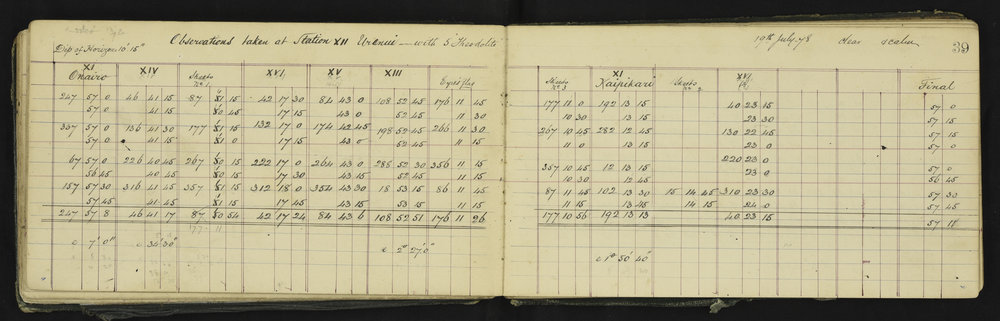 Observations taken at Station XII Urenui — with 5" Theodolite 19th July 78 clear & calm 39
Dip of Horizon 10' 15"
XI XIV XVI XV XIII XI XVI
Onairo Sheets No 1 Sheets No 3 Kaipikari Sheets No 2 Final
247 57 0 46 41 15 87 51 15 42 17 30 84 43 0 108 52 45 176 11 45 177 11 0 192 13 15 40 23 15 57 0
57 0 41 15 50 45 17 15 43 0 52 45 11 30 10 30 13 15 23 30 57 15
337 57 0 136 41 30 177 51 15 132 17 0 174 42 45 198 52 45 266 11 30 267 10 45 282 12 45 130 22 45 57 15
57 0 41 15 51 15 17 15 43 0 52 45 11 15 11 0 13 15 23 0 57 0
67 57 0 226 40 45 267 50 15 222 17 0 264 43 0 288 52 30 356 11 15 357 10 45 12 13 15 220 23 0
56 45 40 45 50 15 17 30 43 15 52 45 11 15 10 30 12 45 23 0 56 45
157 57 30 316 41 45 357 51 15 312 18 0 354 43 30 18 53 15 86 11 45 87 11 45 102 13 30 15 14 45 310 23 30 57 30
57 45 41 45 51 15 17 45 43 15 53 15 11 15 11 15 13 45 14 15 24 0 57 45
247 57 8 46 41 17 87 50 54 42 17 24 84 43 6 108 52 51 176 11 26 177 10 56 192 13 13 40 23 15 57 11
c 7' 0" c 34' 30" c 2° 27' 0" c 1° 50' 40"